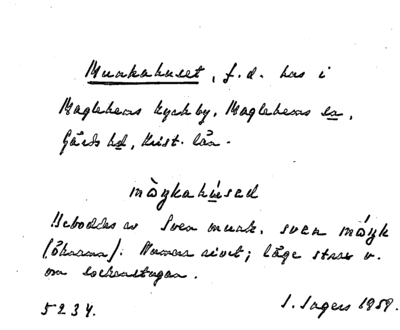 Munkahuset, f.d. hus i
Maglehems kyrkby, Maglehems sn,
Gärds hd, Krist. län.
måŋkahúsed
Beboddes av Sven Munk, sven måŋk
(öknamn). Numera rivet; låg strax v.
om sockenstugan.
5234. I. Ingers 1959.